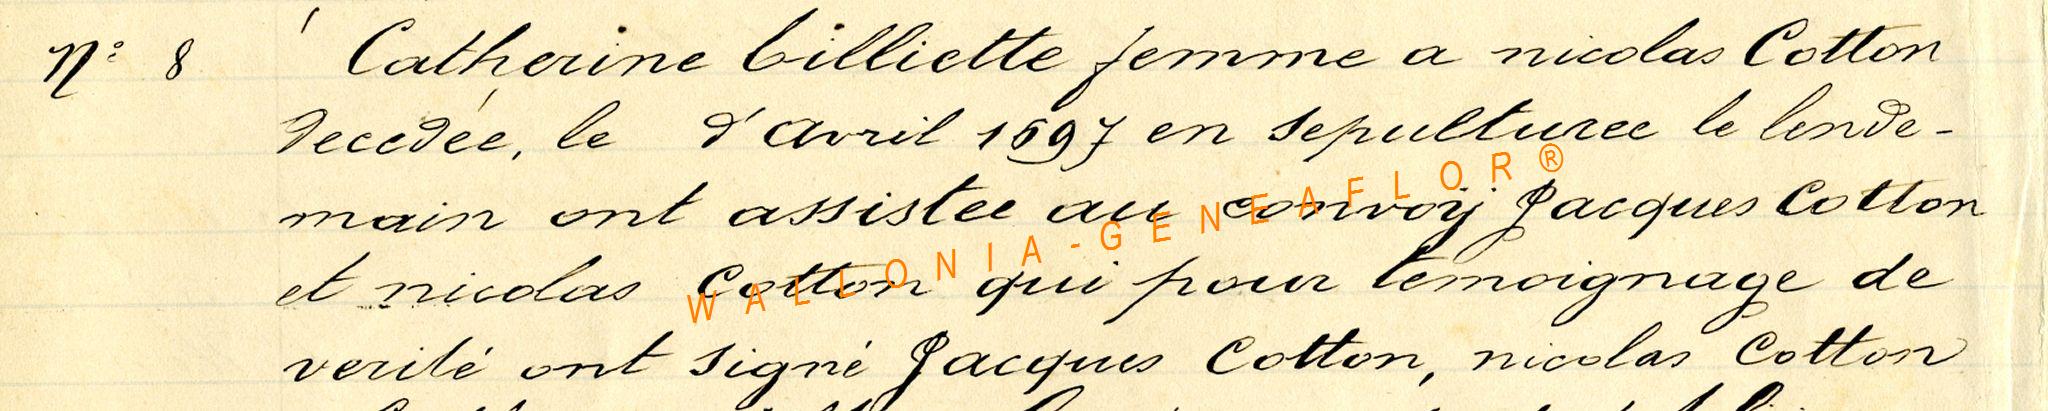 N° 8 Catherine billiette femme a nicolas Cotton
decedée, le d'avril 1697 en sepulturee le lende-
main ont assistee au convoy Jacques Cotton
et nicolas Cotton qui pour temoignage de
verité ont signé Jacques Cotton, nicolas Cotton
WALLONIA-GENEAFLOR®